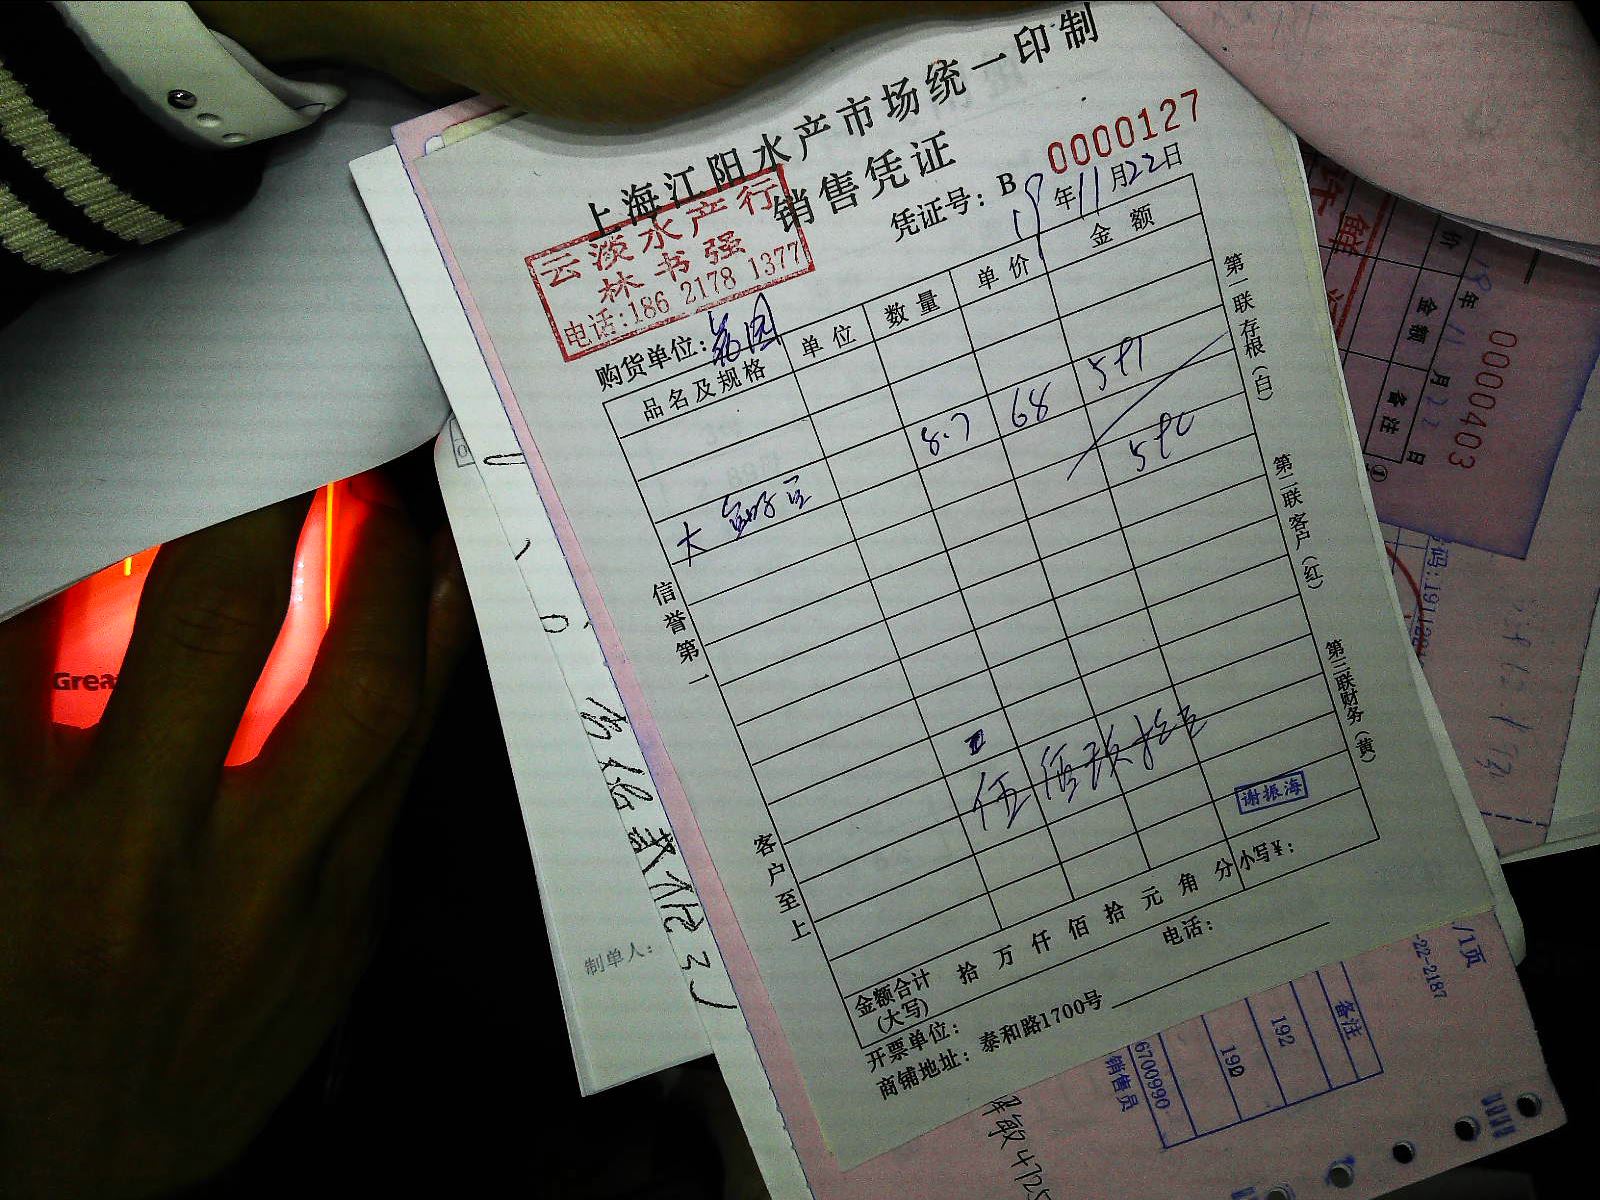 上海江阳水产市场统一印制
销售凭证
凭证号：B 0000127
云淡水产行
林书强
电话:186 2178 1377
19年11月22日
购货单位：
品名及规格 单位 数量 单价 金额
8.7 68 591
大
590
信誉第一
客户至上
第一联存根(白)
第二联客户(红)
第三联财务(黄)
伍佰玖拾
谢振海
金额合计(大写) 拾 万 仟 佰 拾 元 角 分 小写¥：
开票单位： 电话：
商铺地址：泰和路1700号
制单人：
Grea
0000403
年11月22日
金额 备注
/1页
-22-2187
备注
192
190
6700990
销售员